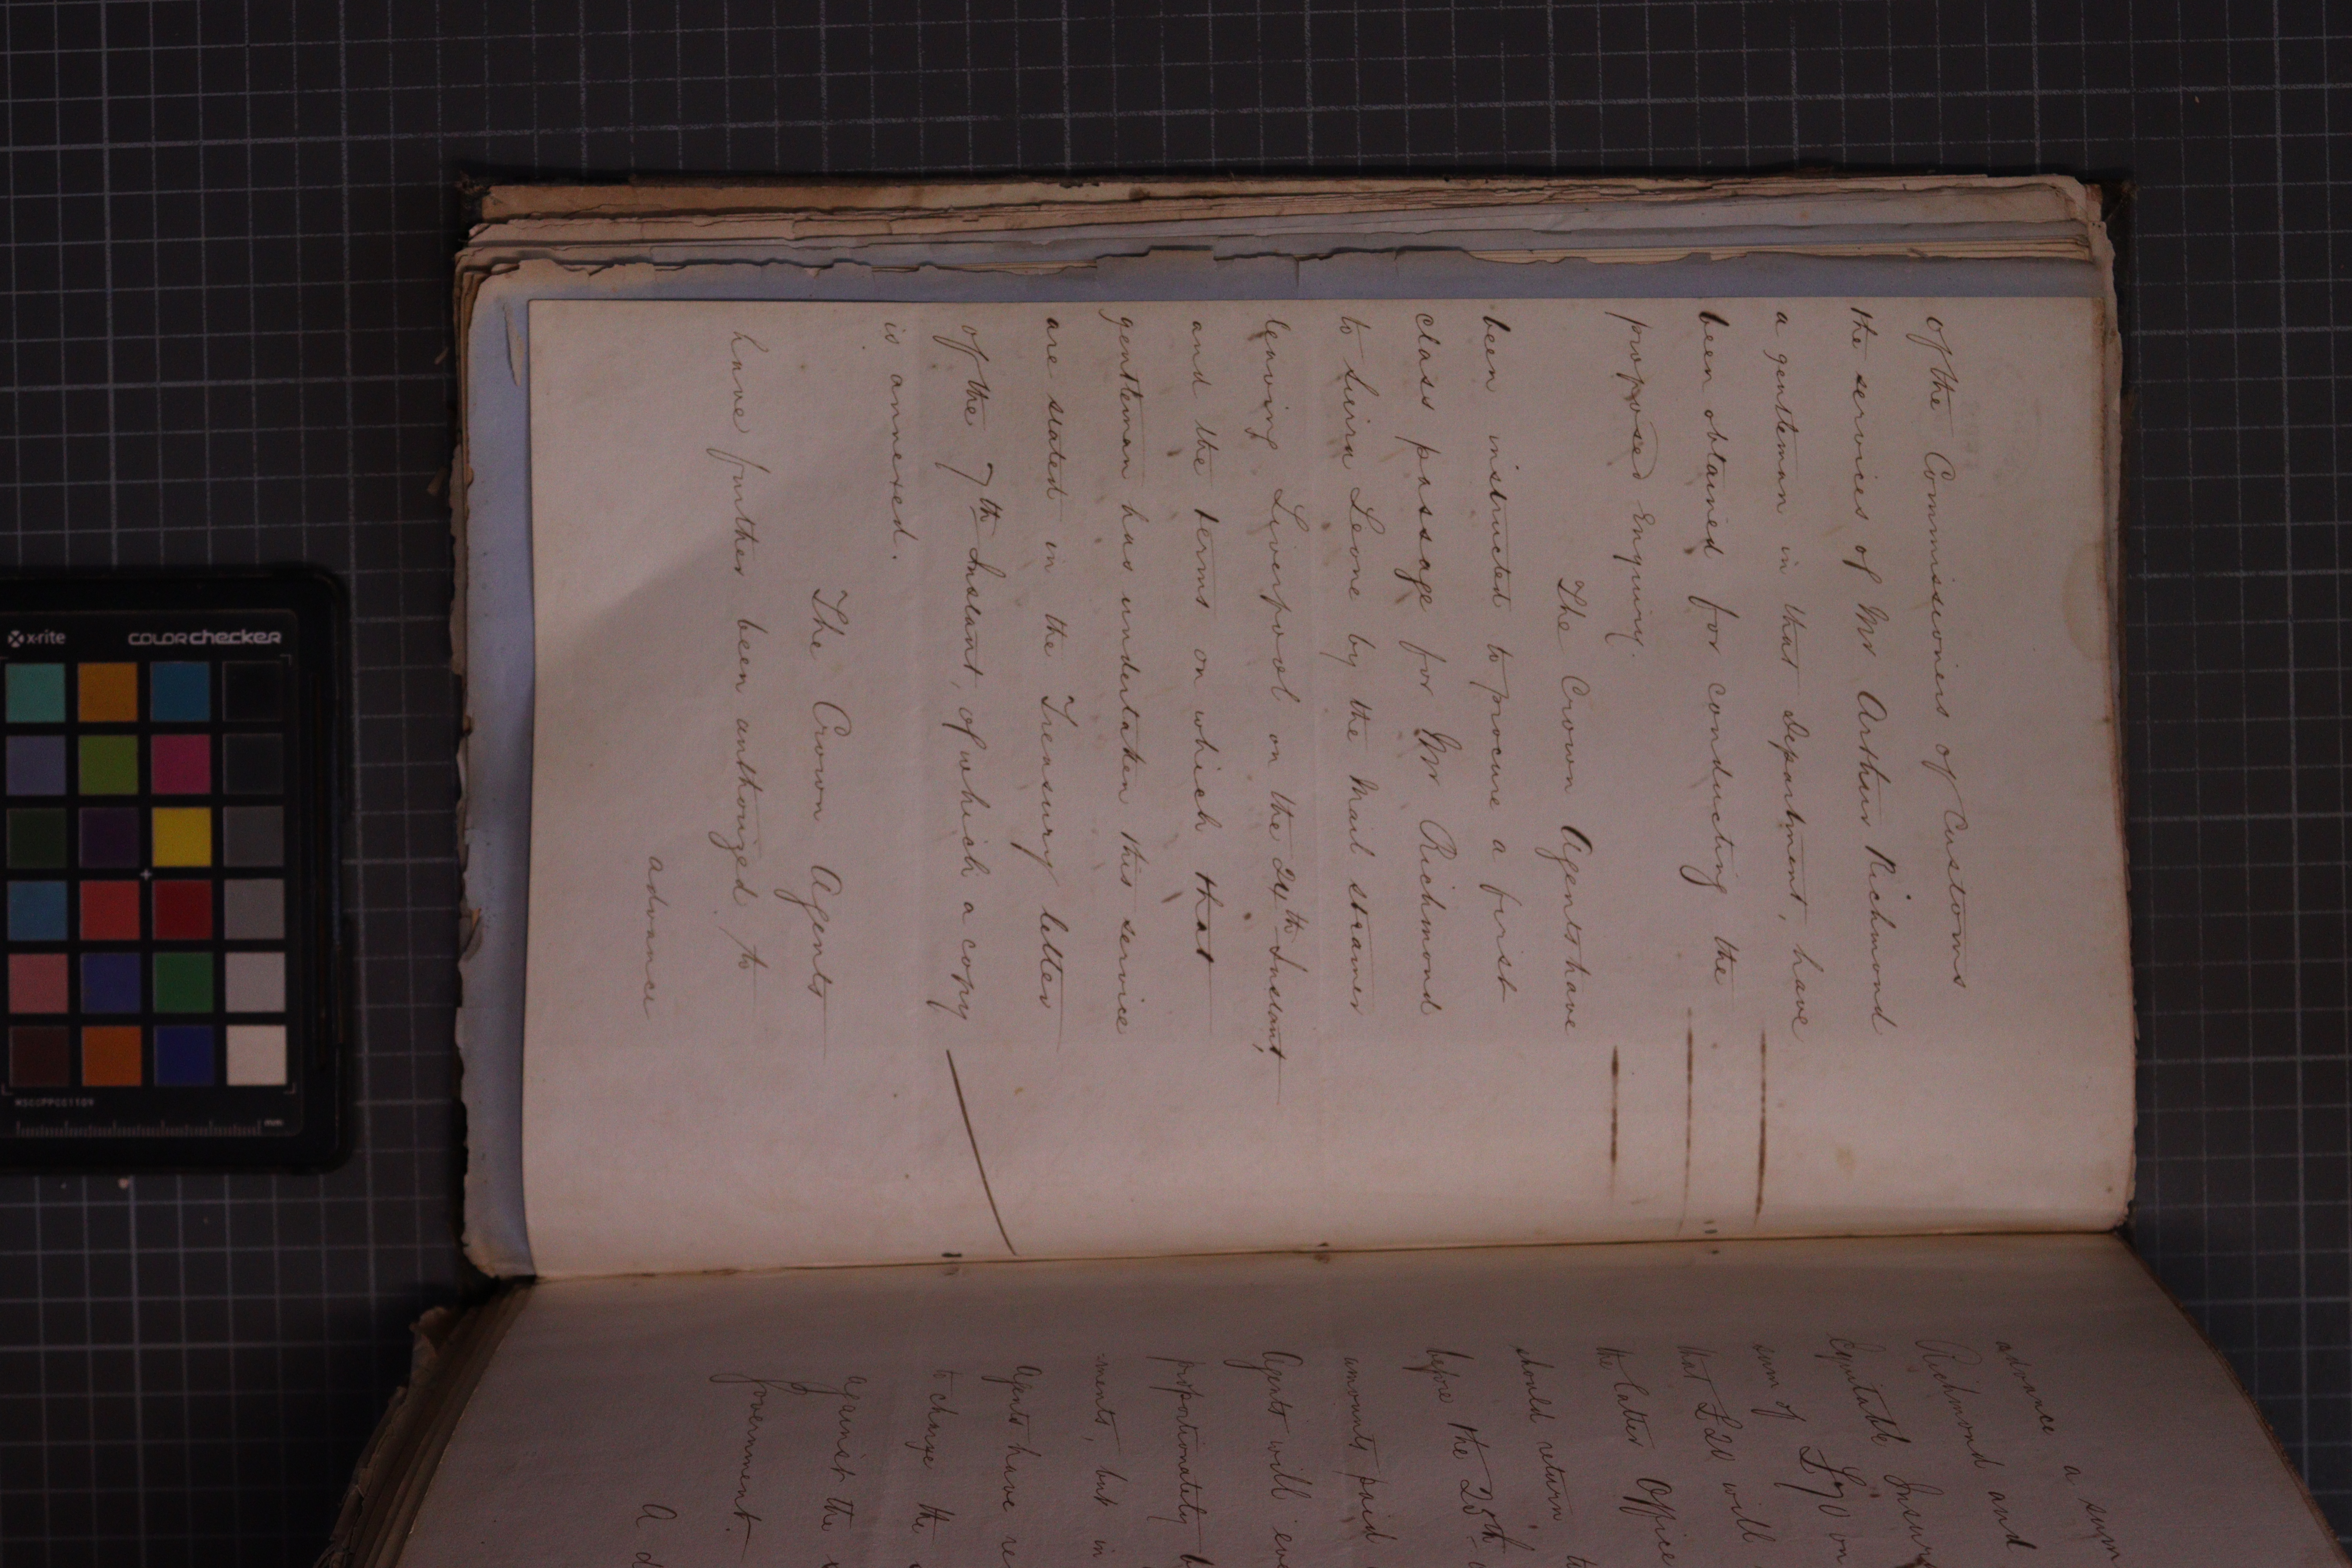 of the Commissioners of Customs
the services of Mr Arthur Richmond
a gentleman in that Department, have
been obtained for conducting the
proposed enquiry.
The Crown Agents have
been instructed to procure a first
class passage for Mr Richmond
to Sierra Leone by the Mail steamer
leaving Liverpool on the 24th Instant,
and the terms on which that
gentleman has undertaken this service
are stated in the Treasury letter
of the 7th Instant, of which a copy
is annexed.
The Crown Agents
have further been authorized to
advance
advance a sum
Richmond and
Equitable Insur
sum of £70 on
that £20 will
the latter Office
should return
before the 25th
amounts paid
Agents will eve
proportionately
-ments, but in
Agents have re
to charge the
against the
Government.
A d
x-rite colorchecker
mm